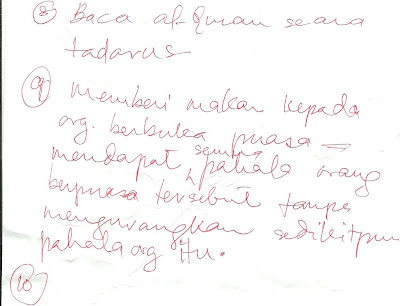 8 Baca al-Quran secara
tadarus
9 memberi makan kepada
org. berbuka puasa –
mendapat semua pahala orang
berpuasa tersebut tanpa
mengurangkan sedikitpun
pahala org itu.
10